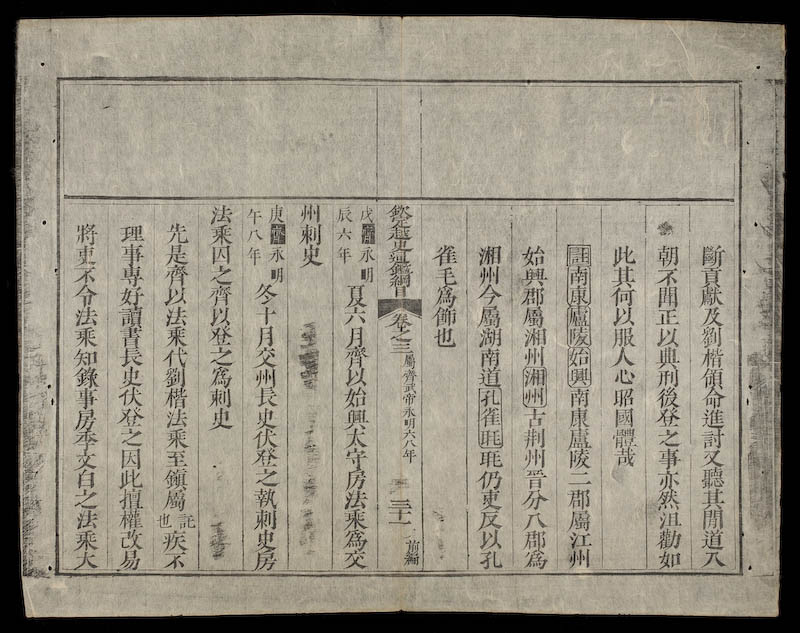 斷貢獻及劉楷領命進討又聽其間道入
朝不聞正以典刑後登之事亦然沮勸如
此其何以服人心昭國體哉
註南康廬陵始興南康廬陵二郡屬江州
始興郡屬湘州湘州古荆州晉分八郡爲
湘州今屬湖南道孔雀毦毦仍吏反以孔
雀毛爲飾也
欽定越史通鑑綱目 卷之三 屬齊武帝永明六八年 三十一 前編
戊辰齊永明六年夏六月齊以始興太守房法乘爲交
州刺史
庚午齊永明八年冬十月交州長史伏登之執刺史房
法乘囚之齊以登之爲刺史
先是齊以法乘代劉楷法乘至鎮屬託也疾不
理事專好讀書長史伏登之因此擅權改易
將吏不令法乘知錄事房季文白之法乘大